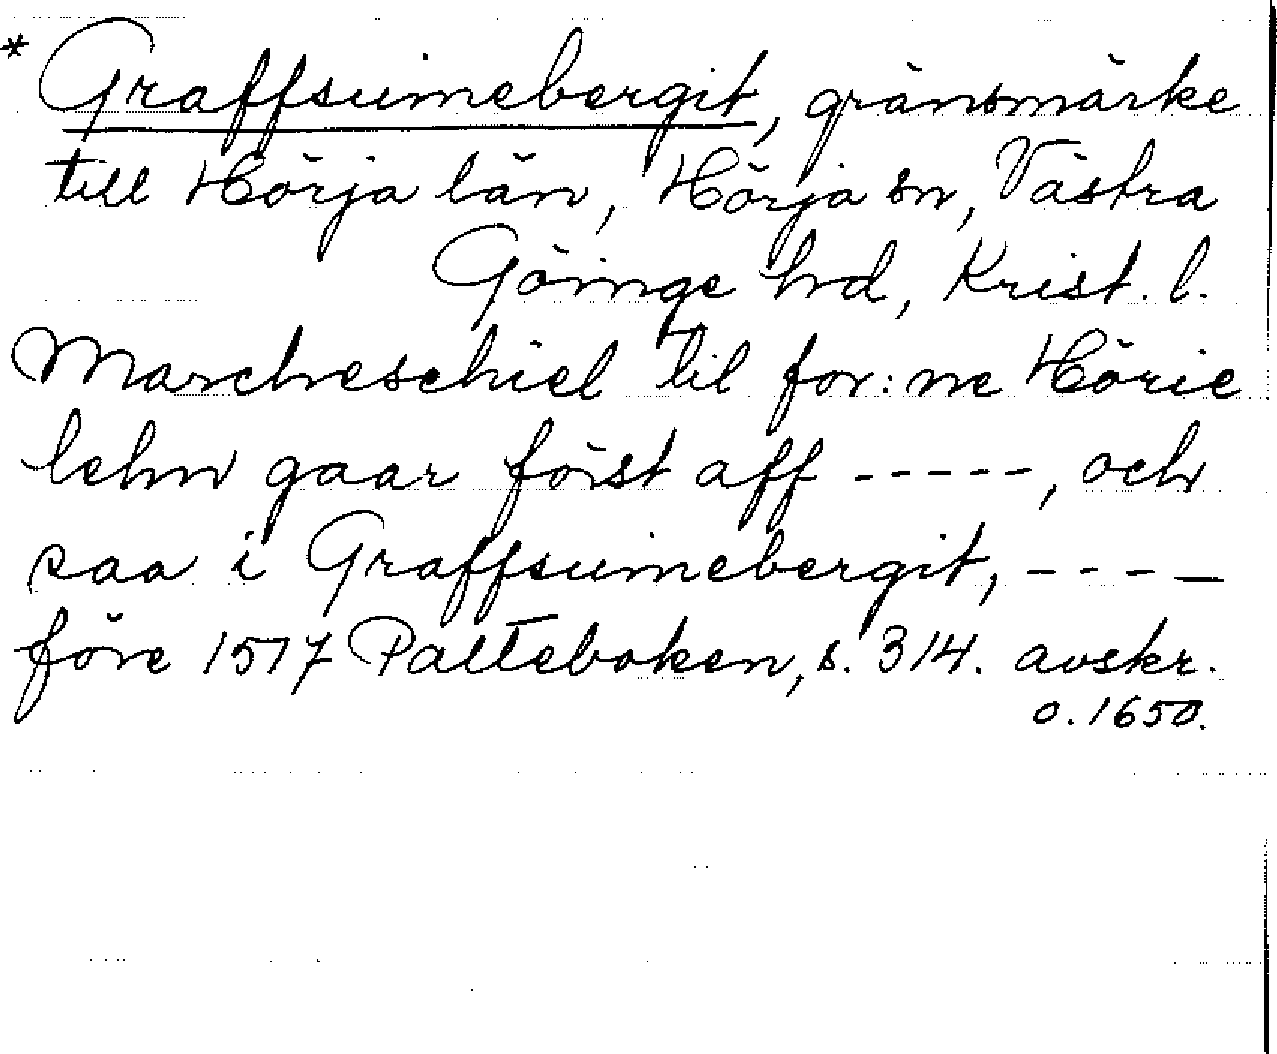 * Graffsuinebergit, gränsmärke
till Hörja län, Hörja sn, Västra
Göinge hd, Krist. l.
Marcheschiel til for:ne Hörie
lehn gaar först aff -----, och
saa i Graffsuinebergit, ----
före 1517 Palteboken, s. 314. avskr.
o. 1650.